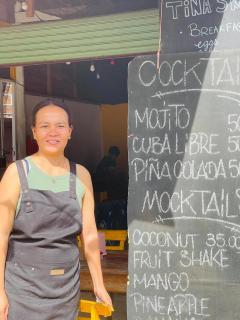 TINA
BREAKFAS
eggs
COCKTAIL
MOJITO 50
CUBA LIBRE 5
PIÑA COLADA 5
MOCKTAILS
COCONUT 35.00
FRUIT SHAKE
MANGO
PINEAPPLE